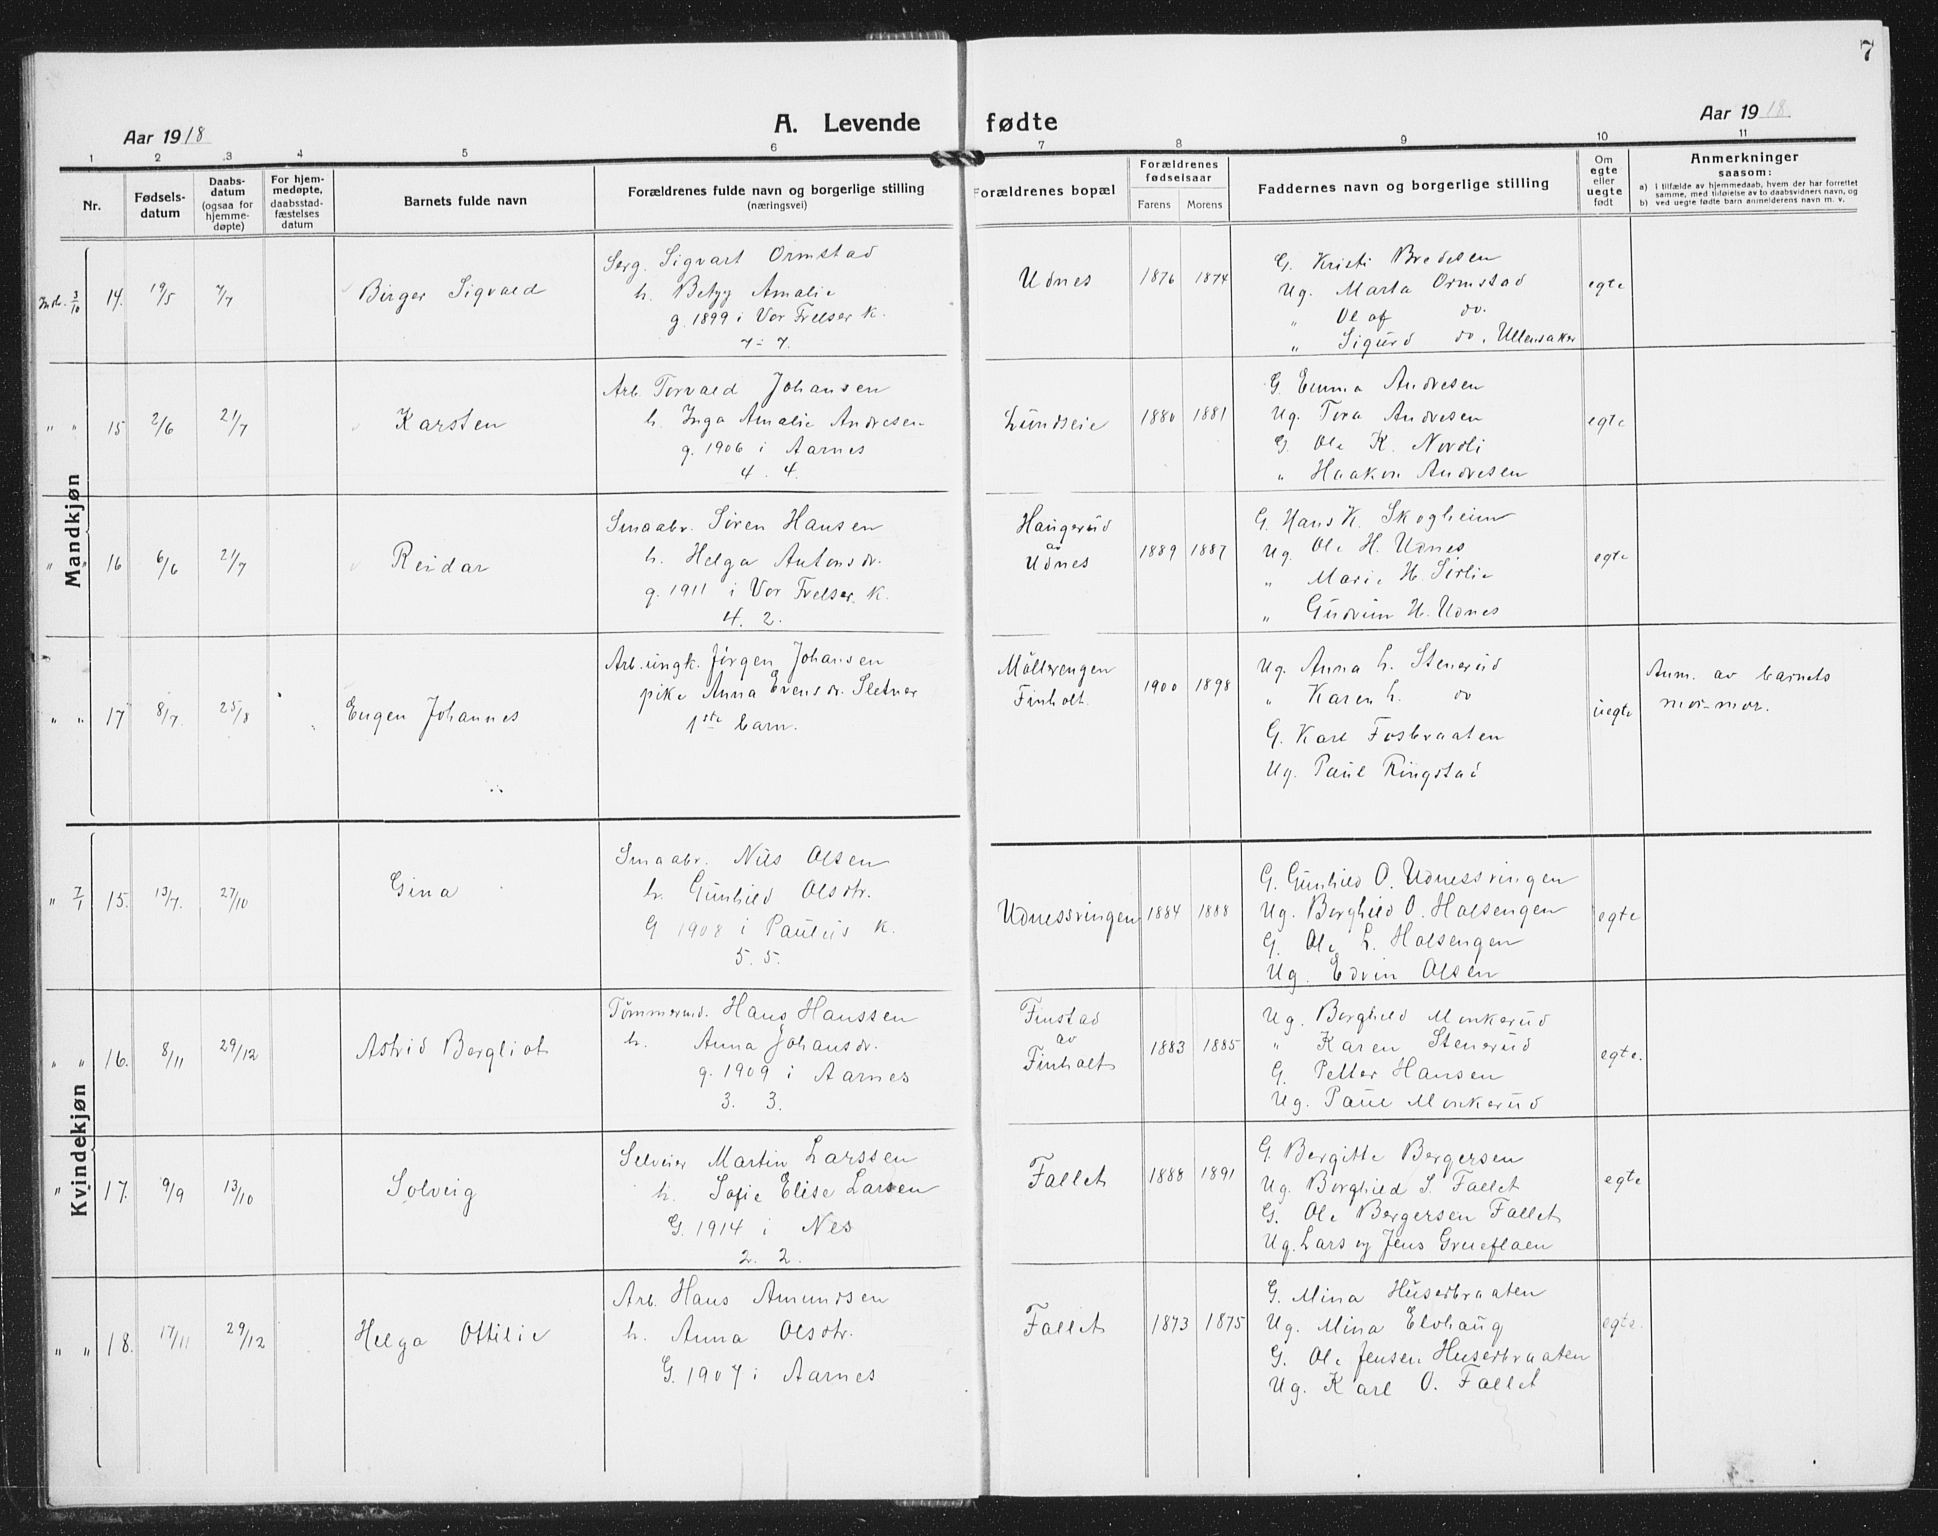 7
Aar 1918
A. Levende fødte
Aar 1918
1 2 3 4 5 6 7 8 9 10 11
Nr.
Fødsels-
datum
Daabs-
datum
(ogsaa for
hjemme-
døpte)
For hjem-
medøpte,
daabsstad-
fæstelses
datum
Barnets fulde navn
Forældrenes fulde navn og borgerlige stilling
(næringsvei)
Forældrenes bopæl
Forældrenes
fødselsaar
Farens Morens
Faddernes navn og borgerlige stilling
Om
egte
eller
uegte
født
Anmerkninger
saasom:
a) I tilfælde av hjemmedaab, hvem der har forrettet
samme, med tilføielse av to daabsvidners navn, og
b) ved uegte fødte barn anmelderens navn m. v.
Mandkjøn
Indb. 3/10 14. 19/5 7/7 Birger Sigvald
Serg. Sigvart Ormstad
h. Betzy Amalie
g. 1899 i Vor Frelser K.
7 - 7.
Udnes 1876 1874
G. Kristi Bredesen
Ug. Marta Ormstad
" Olaf do.
" Sigurd do, Ullensaker
egte
" " 15 2/6 21/7 Karsten
Arb. Torvald Johansen
h. Inga Amalie Andresen
g. 1906 i Aarnes
4. 4.
Lundseie 1880 1881
G. Emma Andresen
Ug. Tora Andresen
G. Ole K. Nordli
" Haakon Andresen
egte
" " 16 6/6 21/7 Reidar
Smaabr. Søren Hansen
h. Helga Antonsdr.
g. 1911 i Vor Frelser K.
4. 2.
Haugerud
av
Udnes
1889 1887
G. Hans K. Skogheim
Ug. Ole H. Udnes
" Marie H. Sørlie
" Gudrun H. Udnes
egte
" " 17 8/7 25/8 Eugen Johannes
Arb. ungk. Jørgen Johansen
pike Anna Evensdr. Sletner
1ste barn.
Møllerengen
Finholt.
1900 1898
Ug. Anna L. Stenerud
" Karen L. do
G. Karl Fosbraaten
Ug. Paul Ringstad
uegte
Anm. av barnets
mor-mor.
Kvindekjøn
" 7/1 15. 13/7. 27/10 Gina
Smaabr. Nils Olsen
h. Gunhild Olsdtr.
G 1908 i Paulus K.
5. 5.
Udnessvingen 1884 1888
G. Gunhild O. Udnessvingen
Ug. Borghild O. Halsengen
G. Ole L. Halsengen
Ug. Edvin Olsen
egte
" " 16. 8/11 29/12 Astrid Bergliot
Tømmermd. Hans Hanssen
h. Anna Johansdr.
g. 1909 i Aarnes
3. 3.
Finstad
av
Finholt
1883 1885
Ug. Borghild Monkerud
" Karen Stenerud
G. Petter Hansen
Ug. Paul Monkerud
egte.
" 17. 9/9 13/10 Solveig
Selveier Martin Larssen
h. Sofie Elise Larsen
G. 1914 i Nes
2. 2.
Fallet 1888 1891
G. Bergitte Bergersen
Ug. Borghild S. Fallet
G. Ole Bergersen Fallet
Ug. Lars og Jens Grueflaen
egte
" " 18. 17/11 29/12 Helga Ottilie
Arb. Hans Amundsen
h. Anna Olsdtr.
G. 1907 i Aarnes
Fallet 1873 1875
G. Mina Huserbraaten
Ug. Mina Elvhaug
G. Ole Jensen Huserbraaten
Ug. Karl O. Fallet
egte.